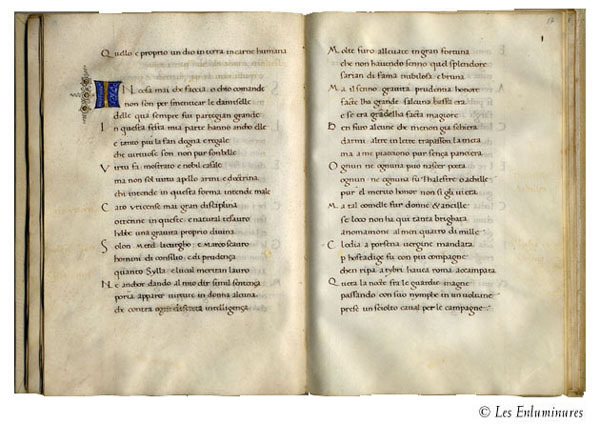 Quello e proprio un dio in terra in carne humana
IN cosa mai che faccia o chio comande
non son per smenticar le damiselle
delle qua sempre fui partegian grande
In questa festa mia parte hanno anche elle
e tanto piu la fan degna e regale
che virtuose son non pur son belle
Virtu fa mostrato e nobel casale
ma non sol virtu apollo armi e doctrina
chi intende in questa forma intende male
Cato uticense mai gran disciplina
ottenne in queste e natural tesauro
hebbe una gravita proprio divina
Solon Ligurgho e Marco scauro
homini di consilio e di prudença
quanto Sylla meritan lauro
Ne anchor dando al mio dir simil sentença
poria apparer virtute in donna alcuna
che contra ogni intelligença
1
Molte furo allevate in gran fortuna
che non havendo senno quel splendore
sarian di fama nubilosa e bruna
Ma il senno gravita prudenza honore
facte lha grande salcuna bassa era
e se era grande lha facta magiore
Ben furo alcune che menon gia schera
darmi altre in letre trapasson la meta
ma a me piaceono pur sença pancera
Ognun ne ognuna puo nascer poeta
ognun ne ognuna fu Thalestre o achille
pur el merito honor non si gli vieta
Ma tal comelle fur donne & ancille
se loco non ha qui tanta brighata
anomamone al men quatro di mille
Clodia a porsena vergine mandata
p hostadige fu con piu compagne
chen ripa a tybri havea roma accampata
Queta la nocte fra le guardie magne
passando con suo nymphe in un volume
prese un sciolto canal per le campagne
© Les Enluminures